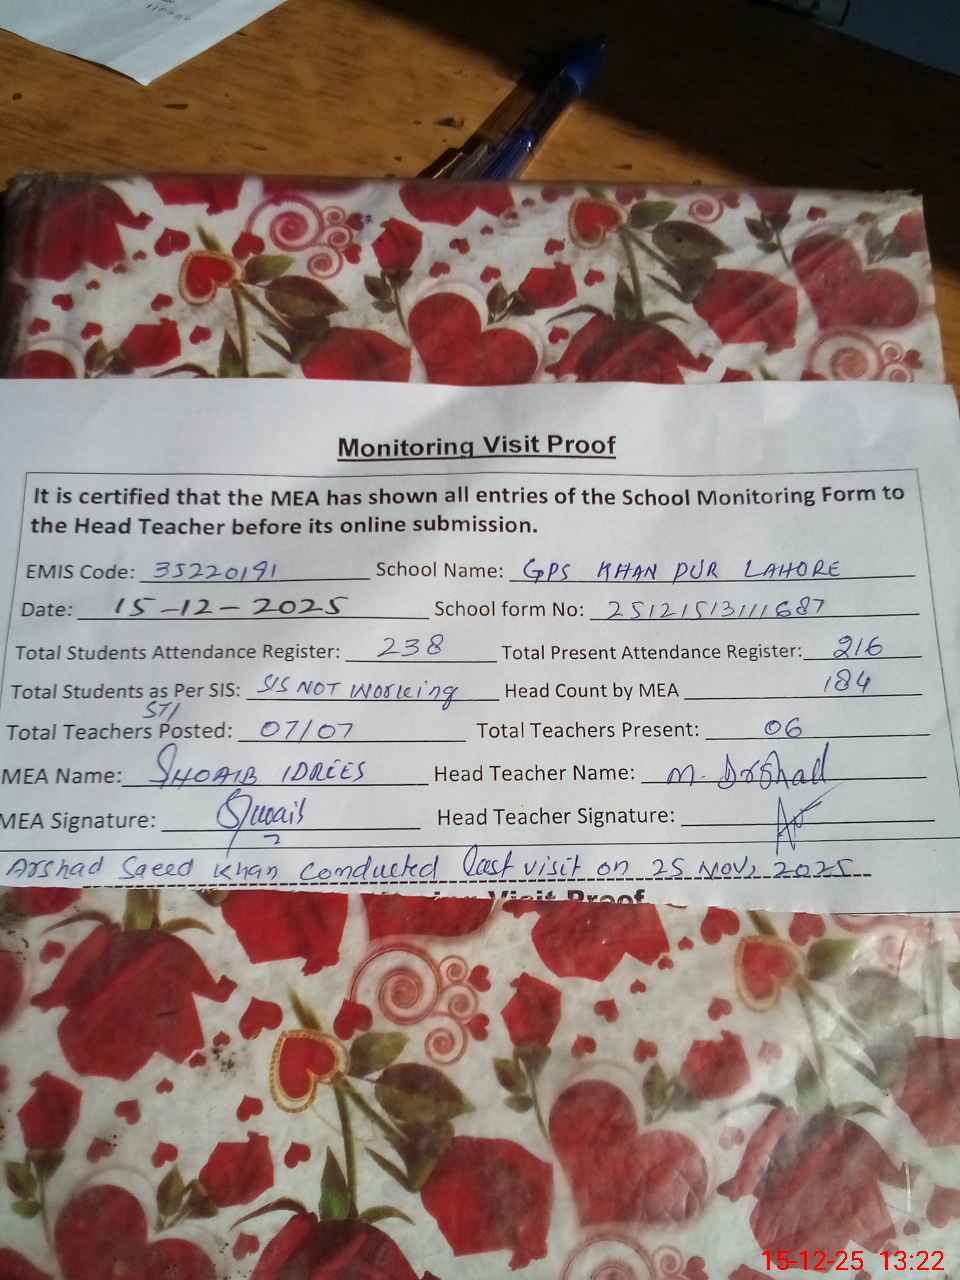 Monitoring Visit Proof
It is certified that the MEA has shown all entries of the School Monitoring Form to
the Head Teacher before its online submission.
EMIS Code: 35220191 School Name: GPS KHAN PUR LAHORE
Date: 15-12-2025 School form No: 2512151311687
Total Students Attendance Register: 238 Total Present Attendance Register: 216
Total Students as Per SIS: SIS NOT Working Head Count by MEA 184
STI
Total Teachers Posted: 07/07 Total Teachers Present: 06
MEA Name: SHOAIB IDREES Head Teacher Name: M. Arshad
MEA Signature: Head Teacher Signature:
Arshad Saeed Khan conducted last visit on 25 Nov, 2025
Visit Proof
15-12-25 13:22